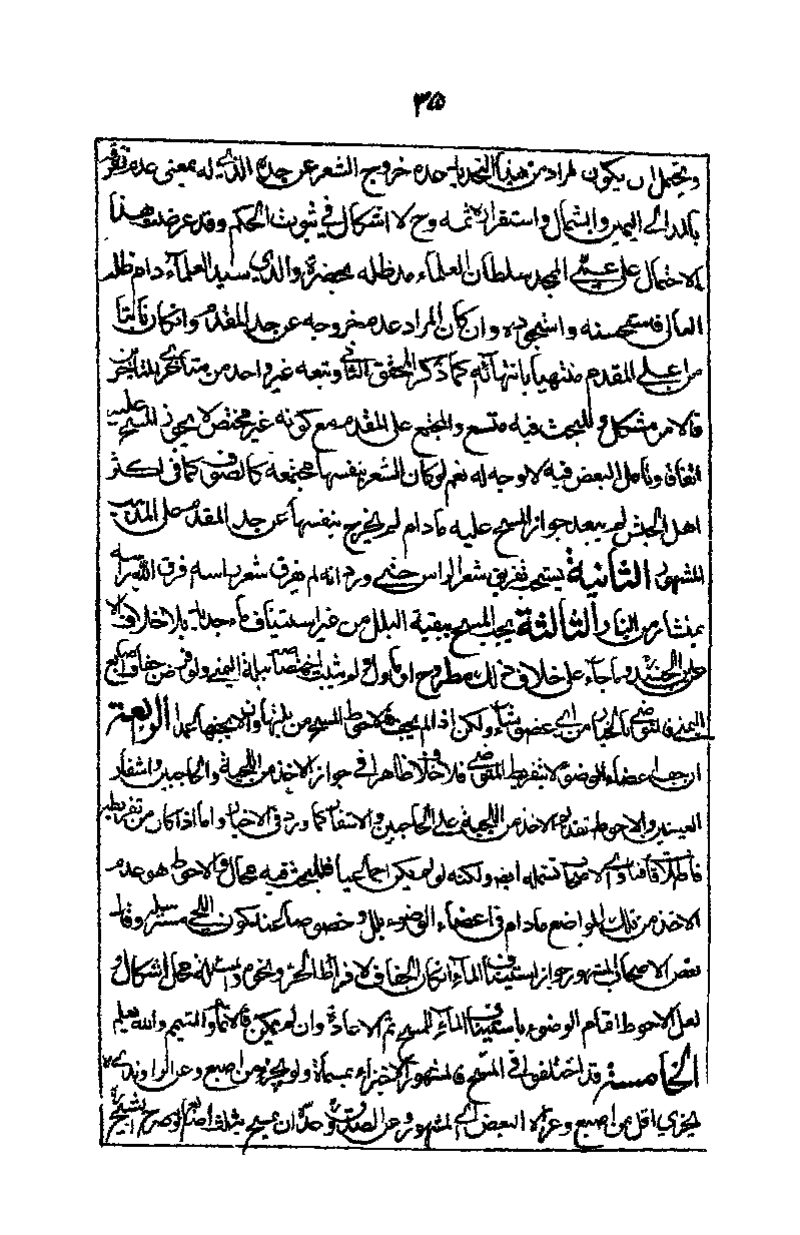 ٣٥
ويحتمل ان يكون المراد من هذا التحديد عدم خروج الشعر عن حده الذي له بمعنى عدم تفر
بالمد الى اليمين والشمال واستقراره ثمه وح لا اشكال في ثبوت الحكم وقد عرضت هذا
الاحتمال على المجد سلطان العلماء مد ظله بحضرة والدي سيد العلماء دام ظله
العالي فاستحسنه واستجوده وان كان المراد عدم خروجه عن حد المقدم وان كان نابتا
من اعلى المقدم منتهيا بانتهائه كما ذكر المحقق الثاني وتبعه غير واحد من متأخري المتاخرين
فالامر مشكل وللبحث فيه متسع والمجتمع على المقدم مع كونه غير مختص لا يجوز المسح عليه
اتفاقا وتامل البعض فيه لا وجه له نعم لو كان الشعر بنفسها مجتمعة كالصوف كما في اكثر
اهل الحبش لم يبعد جواز المسح عليه مادام لم يخرج بنفسها عن حد المقدم على المذهب
المشهور الثانية يستحب تفريق شعر الراس ورد انه لم يفرق شعر راسه فرق الله راسه
بمنشار من النار الثالثة يجب المسح ببقية البلل من غير استيناف ماء جديد بلا خلاف الا
عن ابن الجنيد وما جاء على خلاف ذلك مطروح او ماول ولم يثبت اختصاصه ببلة اليمنى ولو فرض جفاف اصابع
اليمنى فالمتوضي بالخيار من اي عضو شاء ولكن اذا لم يجف فالاحوط المسح من بلتها وان لا يجففها عمدا الرابعة
ان جف اعضاء الوضوء لا بتفريط المتوضي فلا خلاف ظاهرا في جواز الاخذ من اللحية والحاجبين واشفار
العينين والاحوط تقديم الاخذ من اللحية على الحاجبين والاشفار كما ورد في الاخبار واما اذا كان من تفريطه
فاطلاق فتاوى الاصحاب تشمله ايضا ولكنه لو لم يكن اجماعيا فللبحث فيه مجال والاحوط هو عدم
الاخذ من تلك المواضع مادام في اعضاء الوضوء بلل وخصوصا عند كون اللحى مسترسلة وقال
بعض الاصحاب المشهور جواز استيناف الماء ان كان الجفاف لافراط الحر ونحوه وله محل اشكال و
لعل الاحوط اتمام الوضوء باستيناف الماء للمسح ثم الاعادة وان لم يمكن فالاتمام والتيمم والله يعلم
الخامسة قد اختلفوا في المسح فالمشهور الاجتزاء بمسماه ولو بجزء من اصبع وعن الراوندي لا
يجزي اقل من اصبع وعزاه البعض الى المشهور وعن الصدوق وحده ان يمسح بثلث اصابع وصرح الشيخ